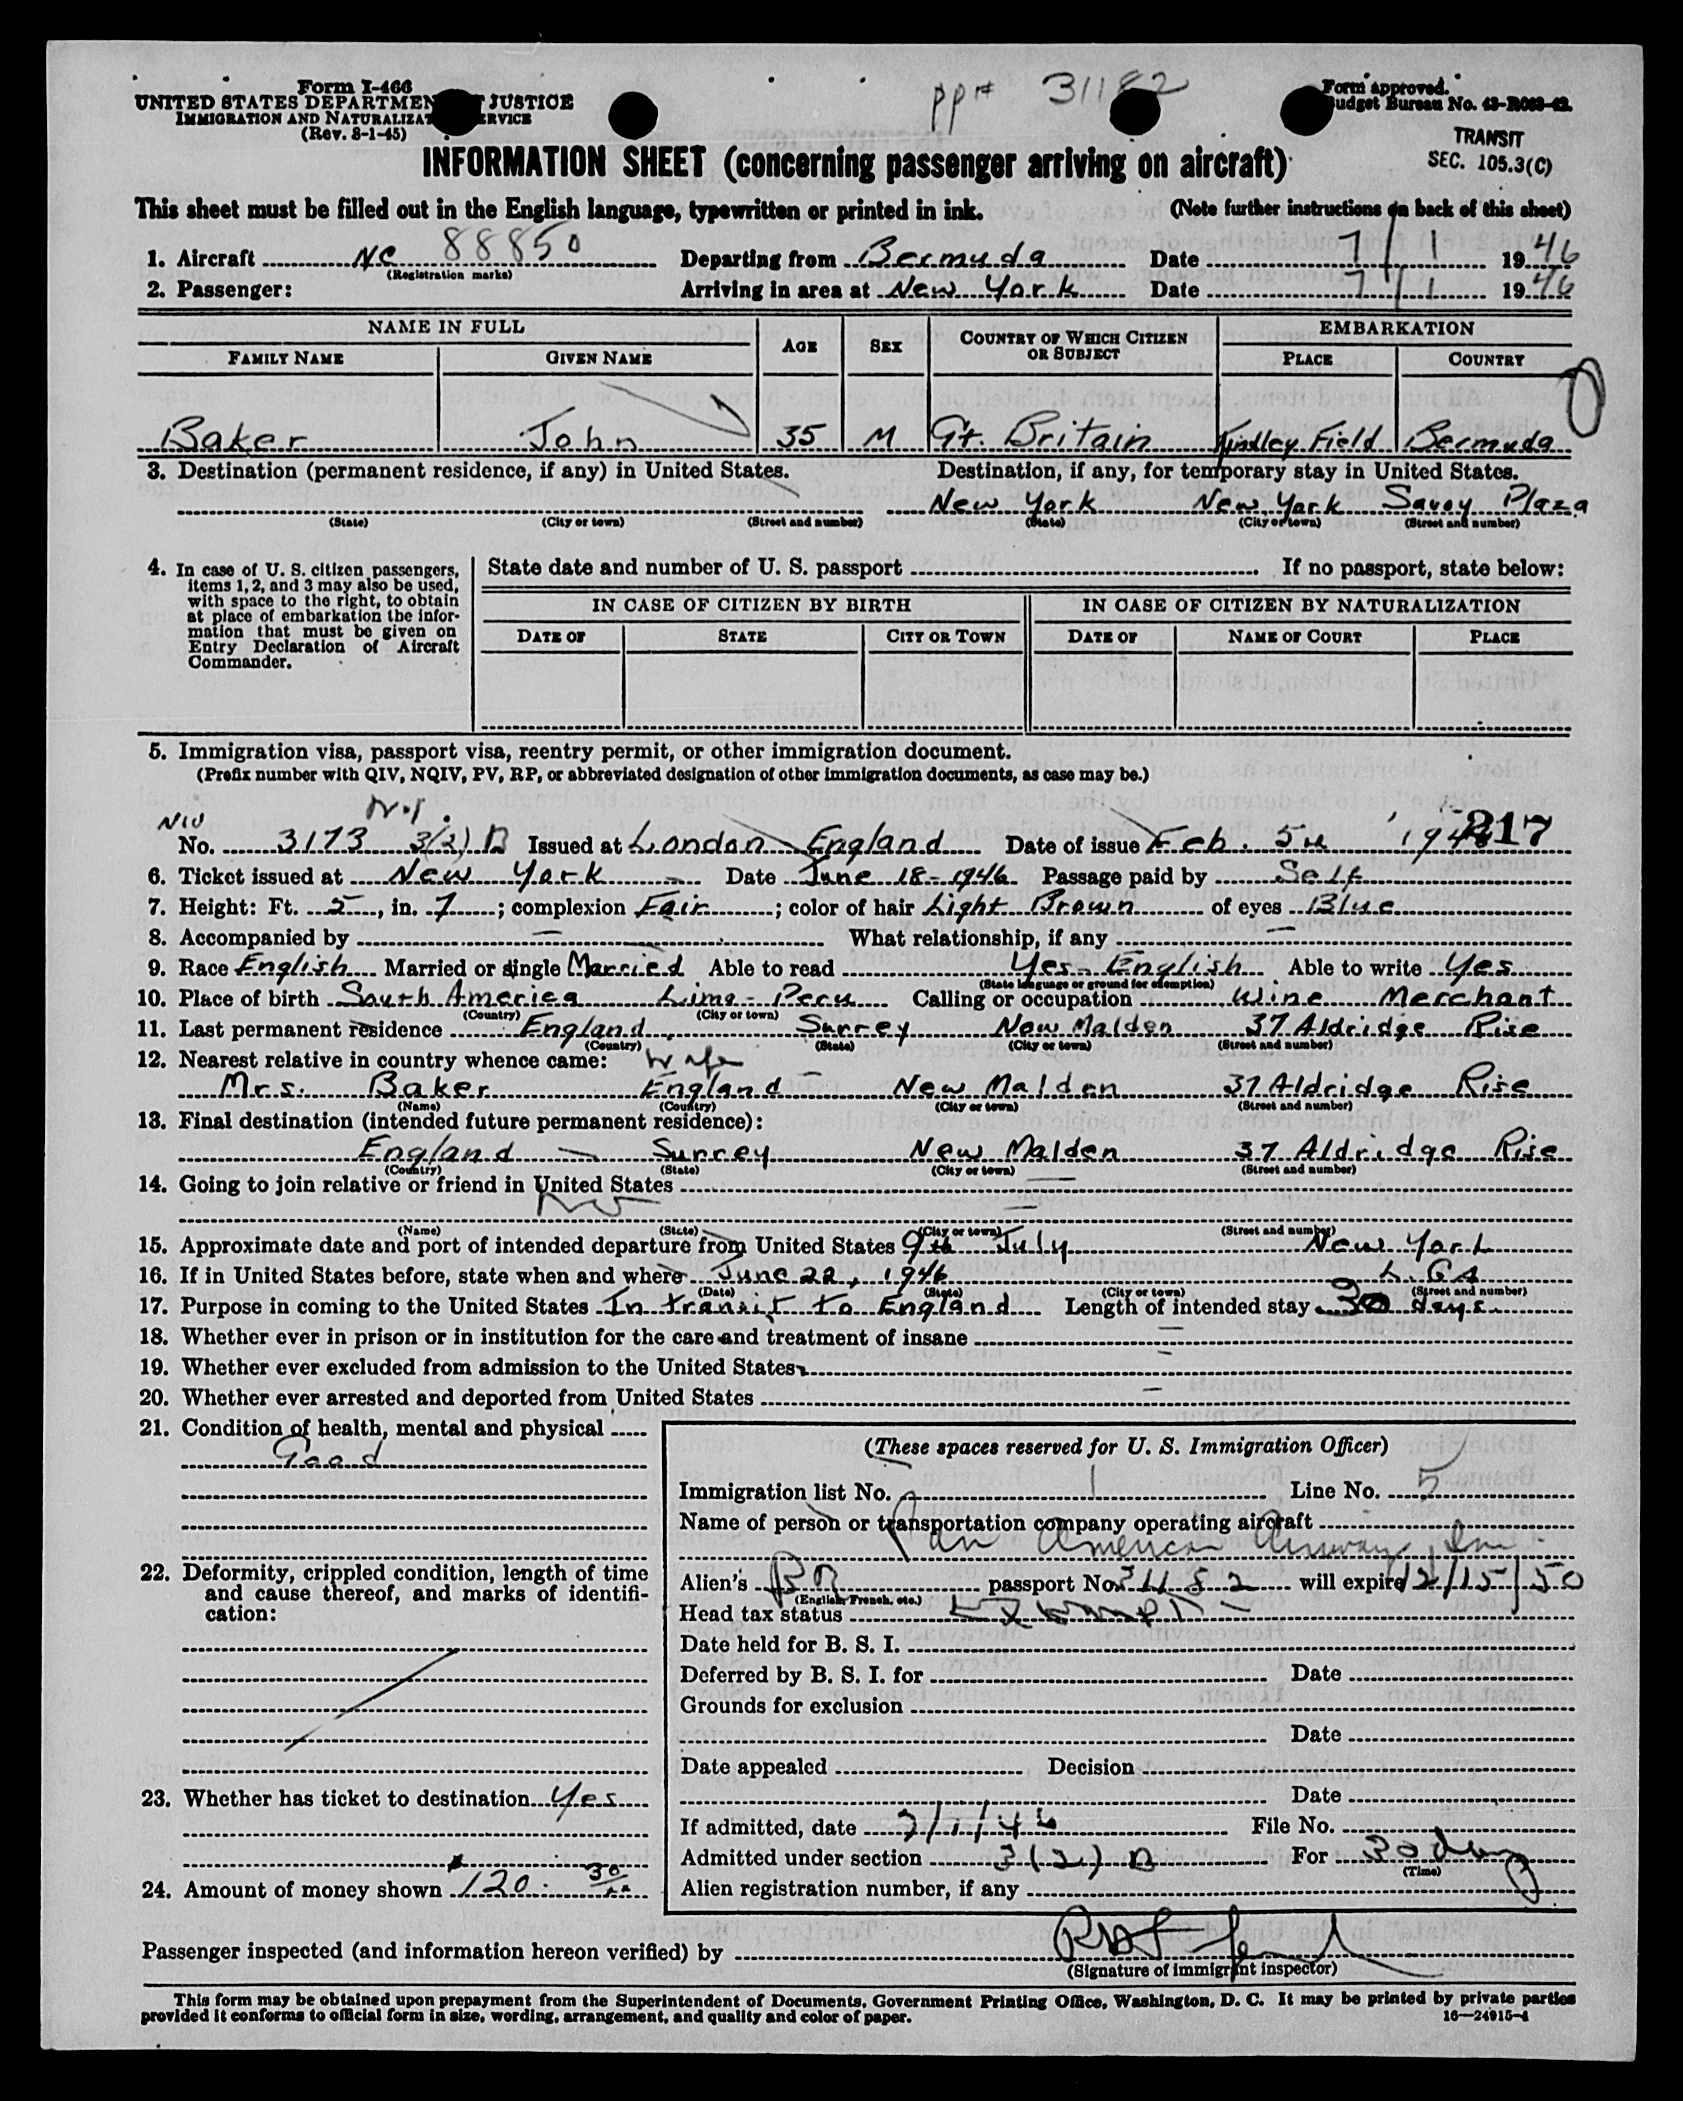 Form I-466
UNITED STATES DEPARTMENT JUSTICE
IMMIGRATION AND NATURALIZATION SERVICE
(Rev. 8-1-45)
pp# 31182
Form approved.
Budget Bureau No. 43-R063-42.
TRANSIT
SEC. 105.3(C)
INFORMATION SHEET (concerning passenger arriving on aircraft)
This sheet must be filled out in the English language, typewritten or printed in ink. (Note further instructions on back of this sheet)
1. Aircraft NC 88850 Departing from Bermuda Date 7/1 1946
(Registration marks)
2. Passenger: Arriving in area at New York Date 7/1 1946
NAME IN FULL
FAMILY NAME GIVEN NAME AGE SEX COUNTRY OF WHICH CITIZEN OR SUBJECT EMBARKATION PLACE COUNTRY
Baker John 35 M Gt. Britain Kindley Field Bermuda
3. Destination (permanent residence, if any) in United States. Destination, if any, for temporary stay in United States.
New York New York Savoy Plaza
(State) (City or town) (Street and number) (State) (City or town) (Street and number)
4. In case of U. S. citizen passengers, items 1, 2, and 3 may also be used, with space to the right, to obtain at place of embarkation the information that must be given on Entry Declaration of Aircraft Commander.
State date and number of U. S. passport If no passport, state below:
IN CASE OF CITIZEN BY BIRTH IN CASE OF CITIZEN BY NATURALIZATION
DATE OF STATE CITY OR TOWN DATE OF NAME OF COURT PLACE
5. Immigration visa, passport visa, reentry permit, or other immigration document.
(Prefix number with QIV, NQIV, PV, RP, or abbreviated designation of other immigration documents, as case may be.)
No. 3173 3(2) B Issued at London England Date of issue Feb. 5th 1946
217
6. Ticket issued at New York Date June 18 - 1946 Passage paid by Self
7. Height: Ft. 5, in. 7; complexion Fair; color of hair Light Brown of eyes Blue
8. Accompanied by — What relationship, if any —
9. Race English Married or single Married Able to read Yes - English Able to write Yes
(State language or ground for exemption)
10. Place of birth South America Lima - Peru Calling or occupation Wine Merchant
(Country) (City or town)
11. Last permanent residence England Surrey New Malden 37 Aldridge Rise
(Country) (State) (City or town) (Street and number)
12. Nearest relative in country whence came: Wife
Mrs. Baker England - New Malden 37 Aldridge Rise
(Name) (Country) (City or town) (Street and number)
13. Final destination (intended future permanent residence):
England - Surrey New Malden 37 Aldridge Rise
(Country) (State) (City or town) (Street and number)
14. Going to join relative or friend in United States —
(Name) (State) (City or town) (Street and number)
15. Approximate date and port of intended departure from United States 9th July New York
16. If in United States before, state when and where June 22, 1946 L. GA
(Date) (State) (City or town) (Street and number)
17. Purpose in coming to the United States In transit to England Length of intended stay 30 days
18. Whether ever in prison or in institution for the care and treatment of insane —
19. Whether ever excluded from admission to the United States —
20. Whether ever arrested and deported from United States —
21. Condition of health, mental and physical
Good
22. Deformity, crippled condition, length of time and cause thereof, and marks of identification:
23. Whether has ticket to destination Yes
24. Amount of money shown 120.
(These spaces reserved for U. S. Immigration Officer)
Immigration list No. 1 Line No. 5
Name of person or transportation company operating aircraft
Pan American Airways, Inc.
Alien's BR passport No. 31182 will expire 12/15/50
(English, French, etc.)
Head tax status Exempt
Date held for B. S. I.
Deferred by B. S. I. for Date
Grounds for exclusion
Date
Date appealed Decision
Date
If admitted, date 7/1/46 File No.
Admitted under section 3(2) B For 30 days
(Time)
Alien registration number, if any
Passenger inspected (and information hereon verified) by
(Signature of immigrant inspector)
This form may be obtained upon prepayment from the Superintendent of Documents, Government Printing Office, Washington, D. C. It may be printed by private parties
provided it conforms to official form in size, wording, arrangement, and quality and color of paper. 16—24915-1